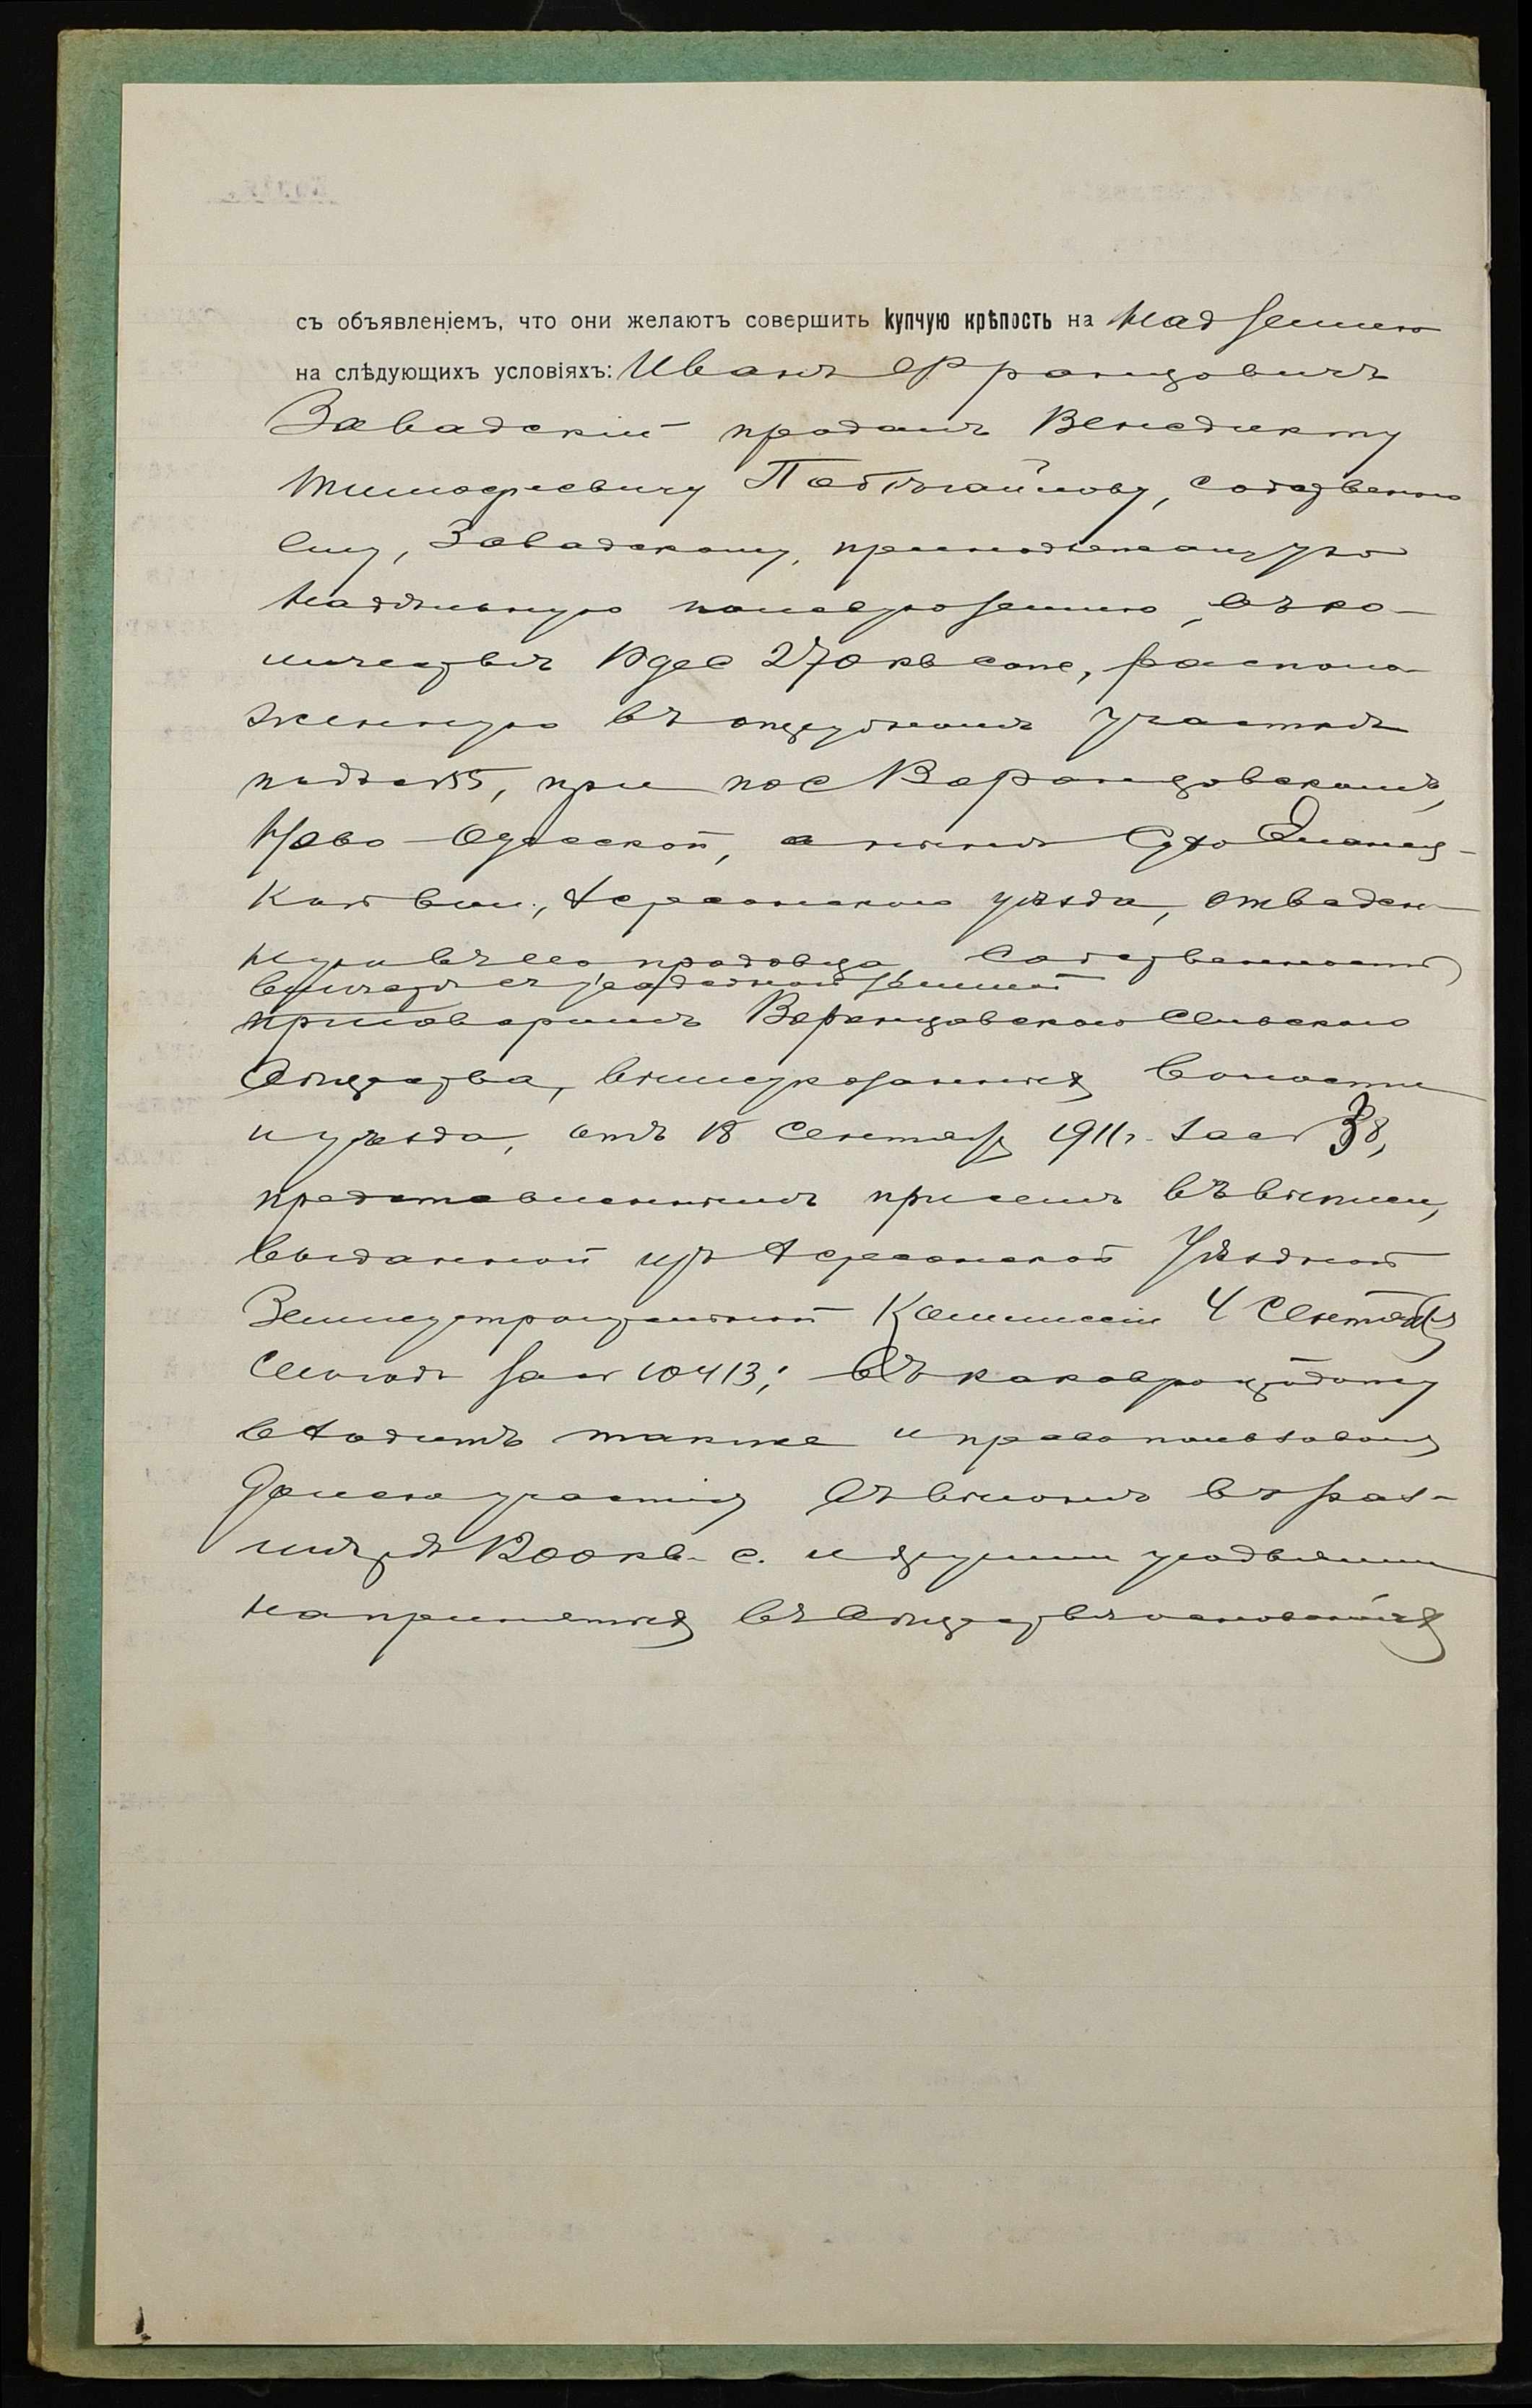 съ объявленіемъ, что они желаютъ совершить купчую крѣпость на над землю
на слѣдующихъ условіяхъ: Иванъ Францовичъ
Завадскій продалъ Венедикту
Тимофеевичу Побѣгайлову, собственно
ему, Завадскому, принадлежащую
надѣльную полевую землю, въ ко-
личествѣ дес 270 кв саж, располо
женную въ отрубномъ участкѣ
подъ № 55, при пос Воронцовскомъ,
Ново-Одесской, а нынѣ Сухо Еланец-
кой вол., Херсонскаго уѣзда, отведен
ную въ его продавца собственность
вмѣстѣ съ усадебной землей
приговоромъ Воронцовскаго Сельскаго
Общества, вышеуказанныхъ волости
и уѣзда, отъ 18 Сентябр 1911 г. за № 38,
представленнымъ при семъ въ выписи,
выданной изъ Херсонской Уѣздной
Землеустроительной Коммиссіи 4 Сентября
сего года за № 10413; въ каковую продажу
входитъ также и право пользованія
участія въ выгонѣ въ раз-
мѣрѣ 1200 кв. с. и другими угодьями
на принятыхъ въ Обществѣ основаніяхъ